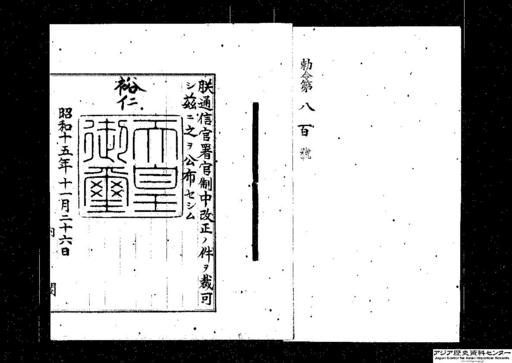 勅令第八百號
朕通信官署官制中改正ノ件ヲ裁可
シ茲ニ之ヲ公布セシム
裕仁
天皇
御璽
昭和十五年十一月二十六日
内閣
アジア歴史資料センター
Japan Center for Asian Historical Records